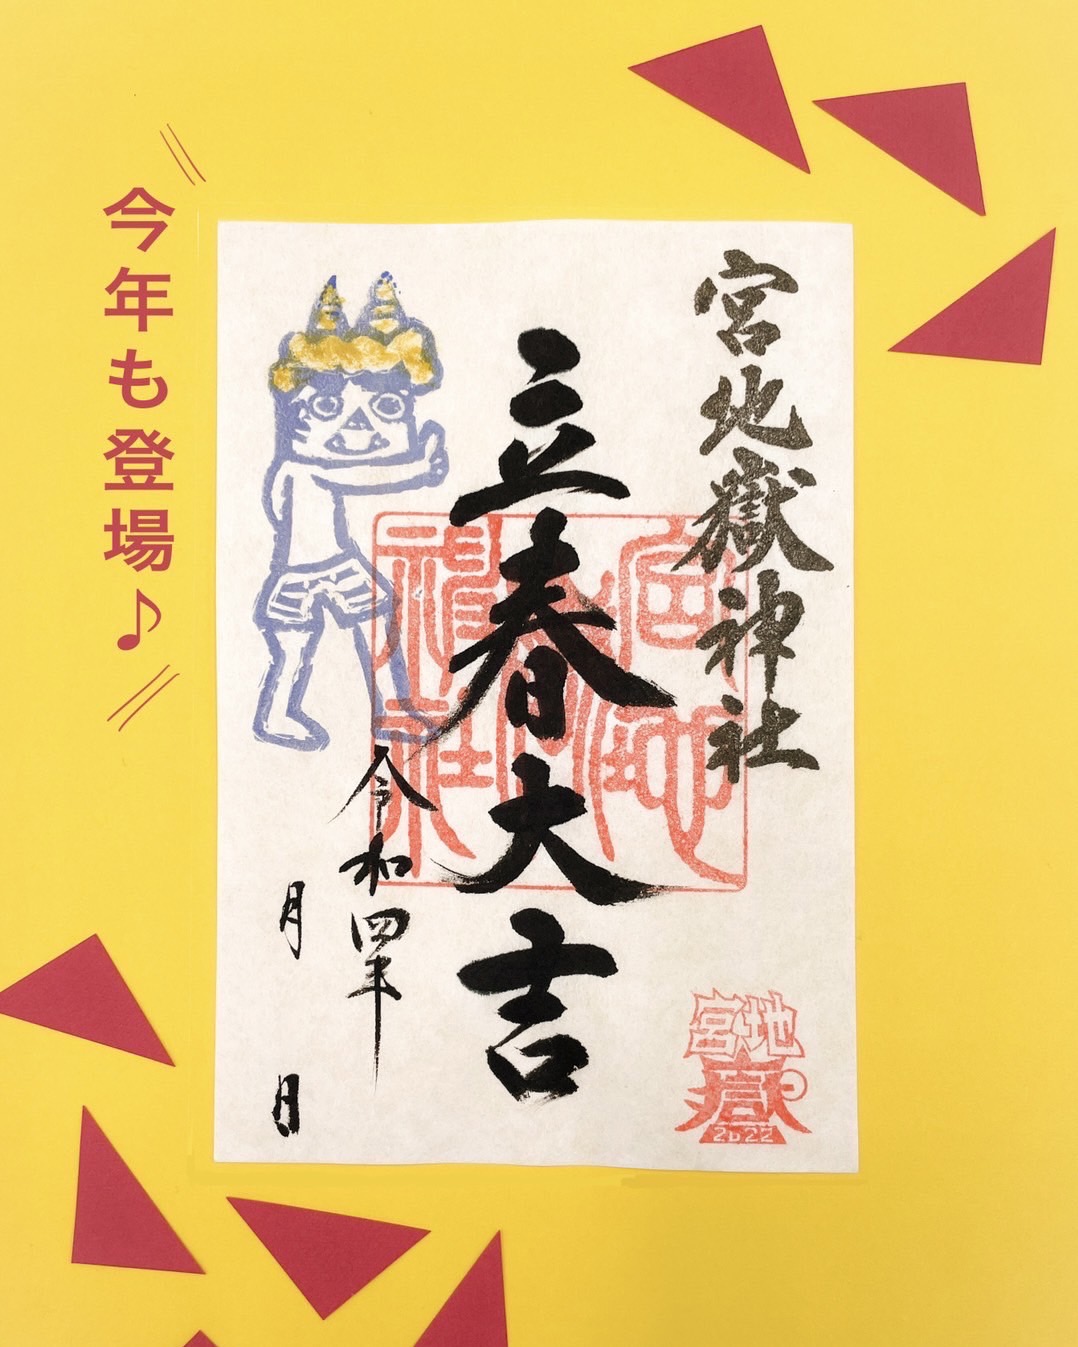 今年も登場♪
宮地嶽神社
立春大吉
令和四年
月 日
宮地嶽神社
宮地
嶽
2022